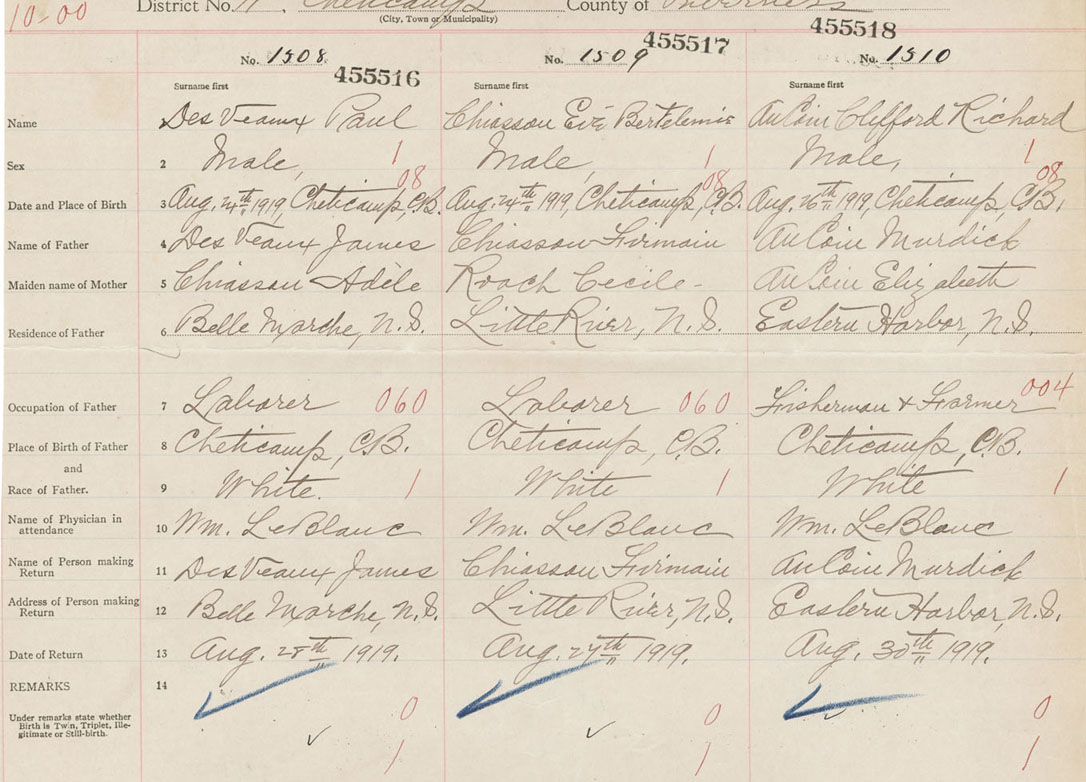 10-00 District No. Cheticamp County of Inverness
(City, Town or Municipality)
No. 1508 455516 No. 1509 455517 No. 1510 455518
Surname first Surname first Surname first
Name Des Veaux Paul Chiasson Bertelemie AuCoin Clifford Richard
Sex 2 Male, 1 Male, 1 Male, 1
08 08 08
Date and Place of Birth 3 Aug. 24th 1919, Cheticamp, C.B. Aug. 24th 1919, Cheticamp, C.B. Aug. 26th 1919, Cheticamp, C.B.
Name of Father 4 Des Veaux James Chiasson Firmain AuCoin Murdick
Maiden name of Mother 5 Chiasson Adèle Roach Cecile - AuCoin Elizabeth
Residence of Father 6 Belle Marche, N.S. Little River, N.S. Eastern Harbor, N.S.
Occupation of Father 7 Laborer 060 Laborer 060 Fisherman & Farmer 004
Place of Birth of Father 8 Cheticamp, C.B. Cheticamp, C.B. Cheticamp, C.B.
and
Race of Father. 9 White. 1 White 1 White 1
Name of Physician in
attendance 10 Wm. LeBlanc Wm. LeBlanc Wm. LeBlanc
Name of Person making
Return 11 Des Veaux James Chiasson Firmain AuCoin Murdick
Address of Person making
Return 12 Belle Marche, N.S. Little River, N.S. Eastern Harbor, N.S.
Date of Return 13 Aug. 28th 1919. Aug. 27th 1919. Aug. 30th 1919.
REMARKS 14
Under remarks state whether
Birth is Twin, Triplet, Ille-
gitimate or Still-birth.
0 0 0
1 1 1